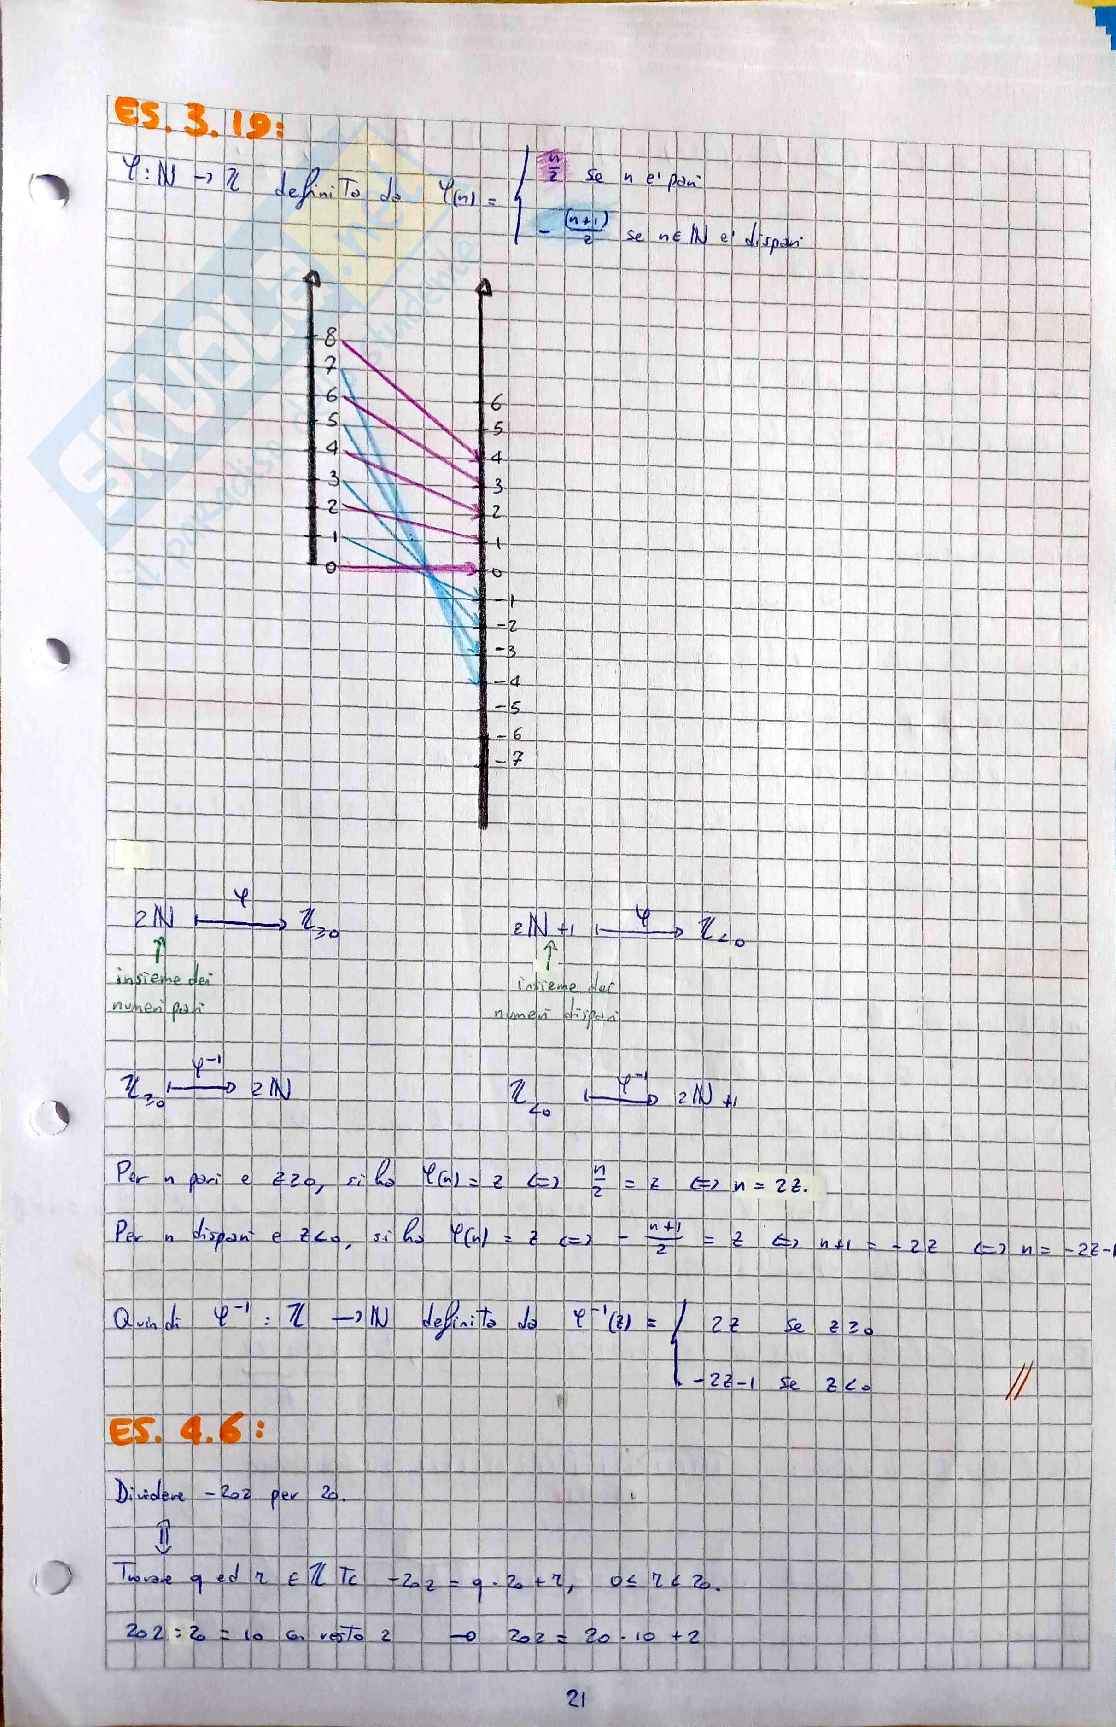 ES. 3.19:
φ: ℕ → ℤ definita da φ(n) = { n/2 se n e' pari
-(n+1)/2 se n∈ℕ e' dispari
8
7
6
5
4
3
2
1
0
6
5
4
3
2
1
0
-1
-2
-3
-4
-5
-6
-7
2ℕ ⟼ φ ℤ≥0
2ℕ+1 ⟼ φ ℤ<0
insieme dei
numeri pari
insieme dei
numeri dispari
ℤ≥0 ⟼ φ⁻¹ 2ℕ
ℤ<0 ⟼ φ⁻¹ 2ℕ+1
Per n pari e z≥0, si ha φ(n) = z ⇔ n/2 = z ⇔ n = 2z.
Per n dispari e z<0, si ha φ(n) = z ⇔ -(n+1)/2 = z ⇔ n+1 = -2z ⇔ n = -2z-1
Quindi φ⁻¹: ℤ → ℕ definita da φ⁻¹(z) = { 2z se z≥0
-2z-1 se z<0 //
ES. 4.6:
Dividere -202 per 20.
⇕
Trovare q ed r ∈ ℤ Tc -202 = q·20+r, 0≤r<20.
202:20 = 10 con resto 2 → 202 = 20·10+2
21
SKUOLA.NET